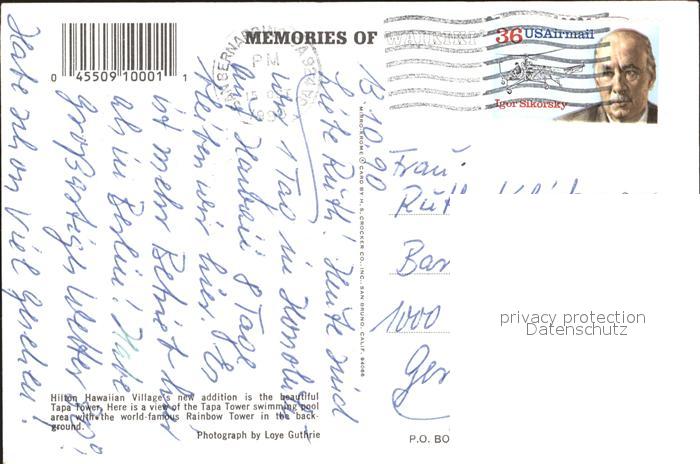 MEMORIES OF WAIKIKI
0 45509 10001 1
SAN BERNARDINO, CA
PM
36 USAirmail
Igor Sikorsky
13.10.90
Liebe Ruth! Heute sind
wir 1 Tag in Honolulu
auf Hawaii 8 Tage
bleiben wir hier. Es
ist mehr Betrieb hier
als in Berlin! Habe
Großartiges Wetter
Habe schon viel gesehen!
Frau
Ruth
Bar
1000
Ger
MIRRO-KROME ® CARD BY H. S. CROCKER CO., INC., SAN BRUNO, CALIF. 94066
privacy protection
Datenschutz
Hilton Hawaiian Village's new addition is the beautiful
Tapa Tower. Here is a view of the Tapa Tower swimming pool
area with the world-famous Rainbow Tower in the back-
ground.
Photograph by Loye Guthrie
P.O. BO